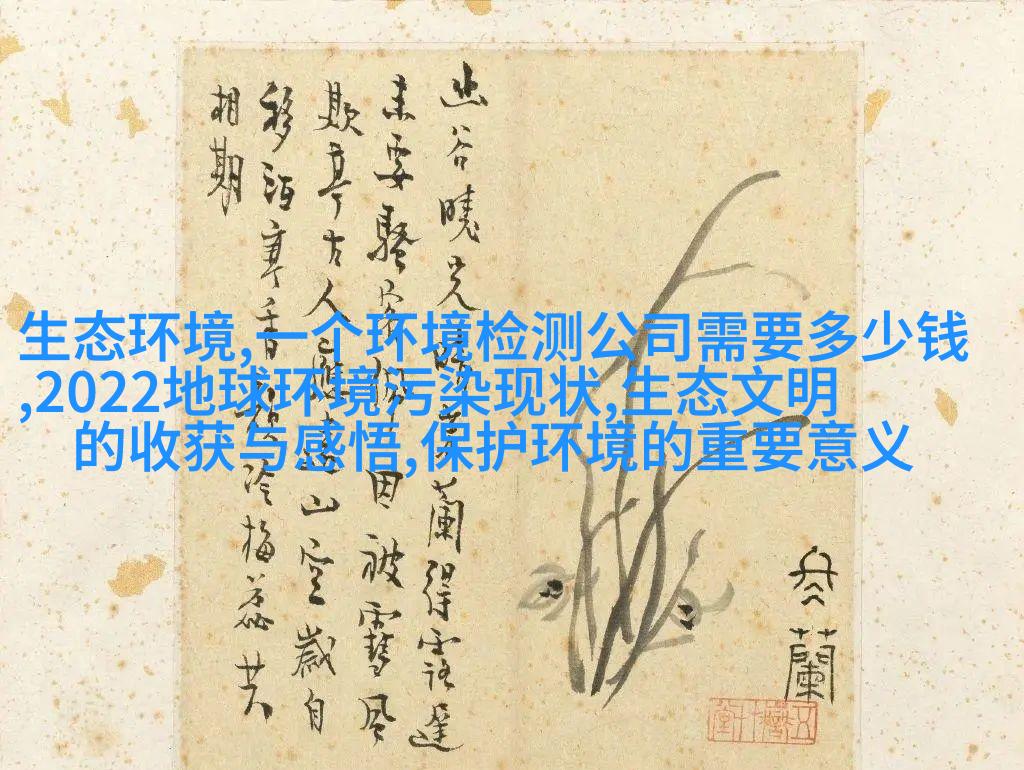 生态环境,一个环境检测公司需要多少钱
,2022地球环境污染现状,生态文明
的收获与感悟,保护环境的重要意义
幽谷曉光蘭得露遲
未要騷因被雪風
欺古人山空歲自
移寒香冷梅蕊共
相期
冬蘭